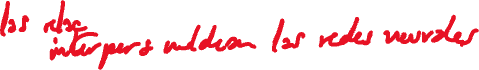 las relac
interpers moldean las redes neurales